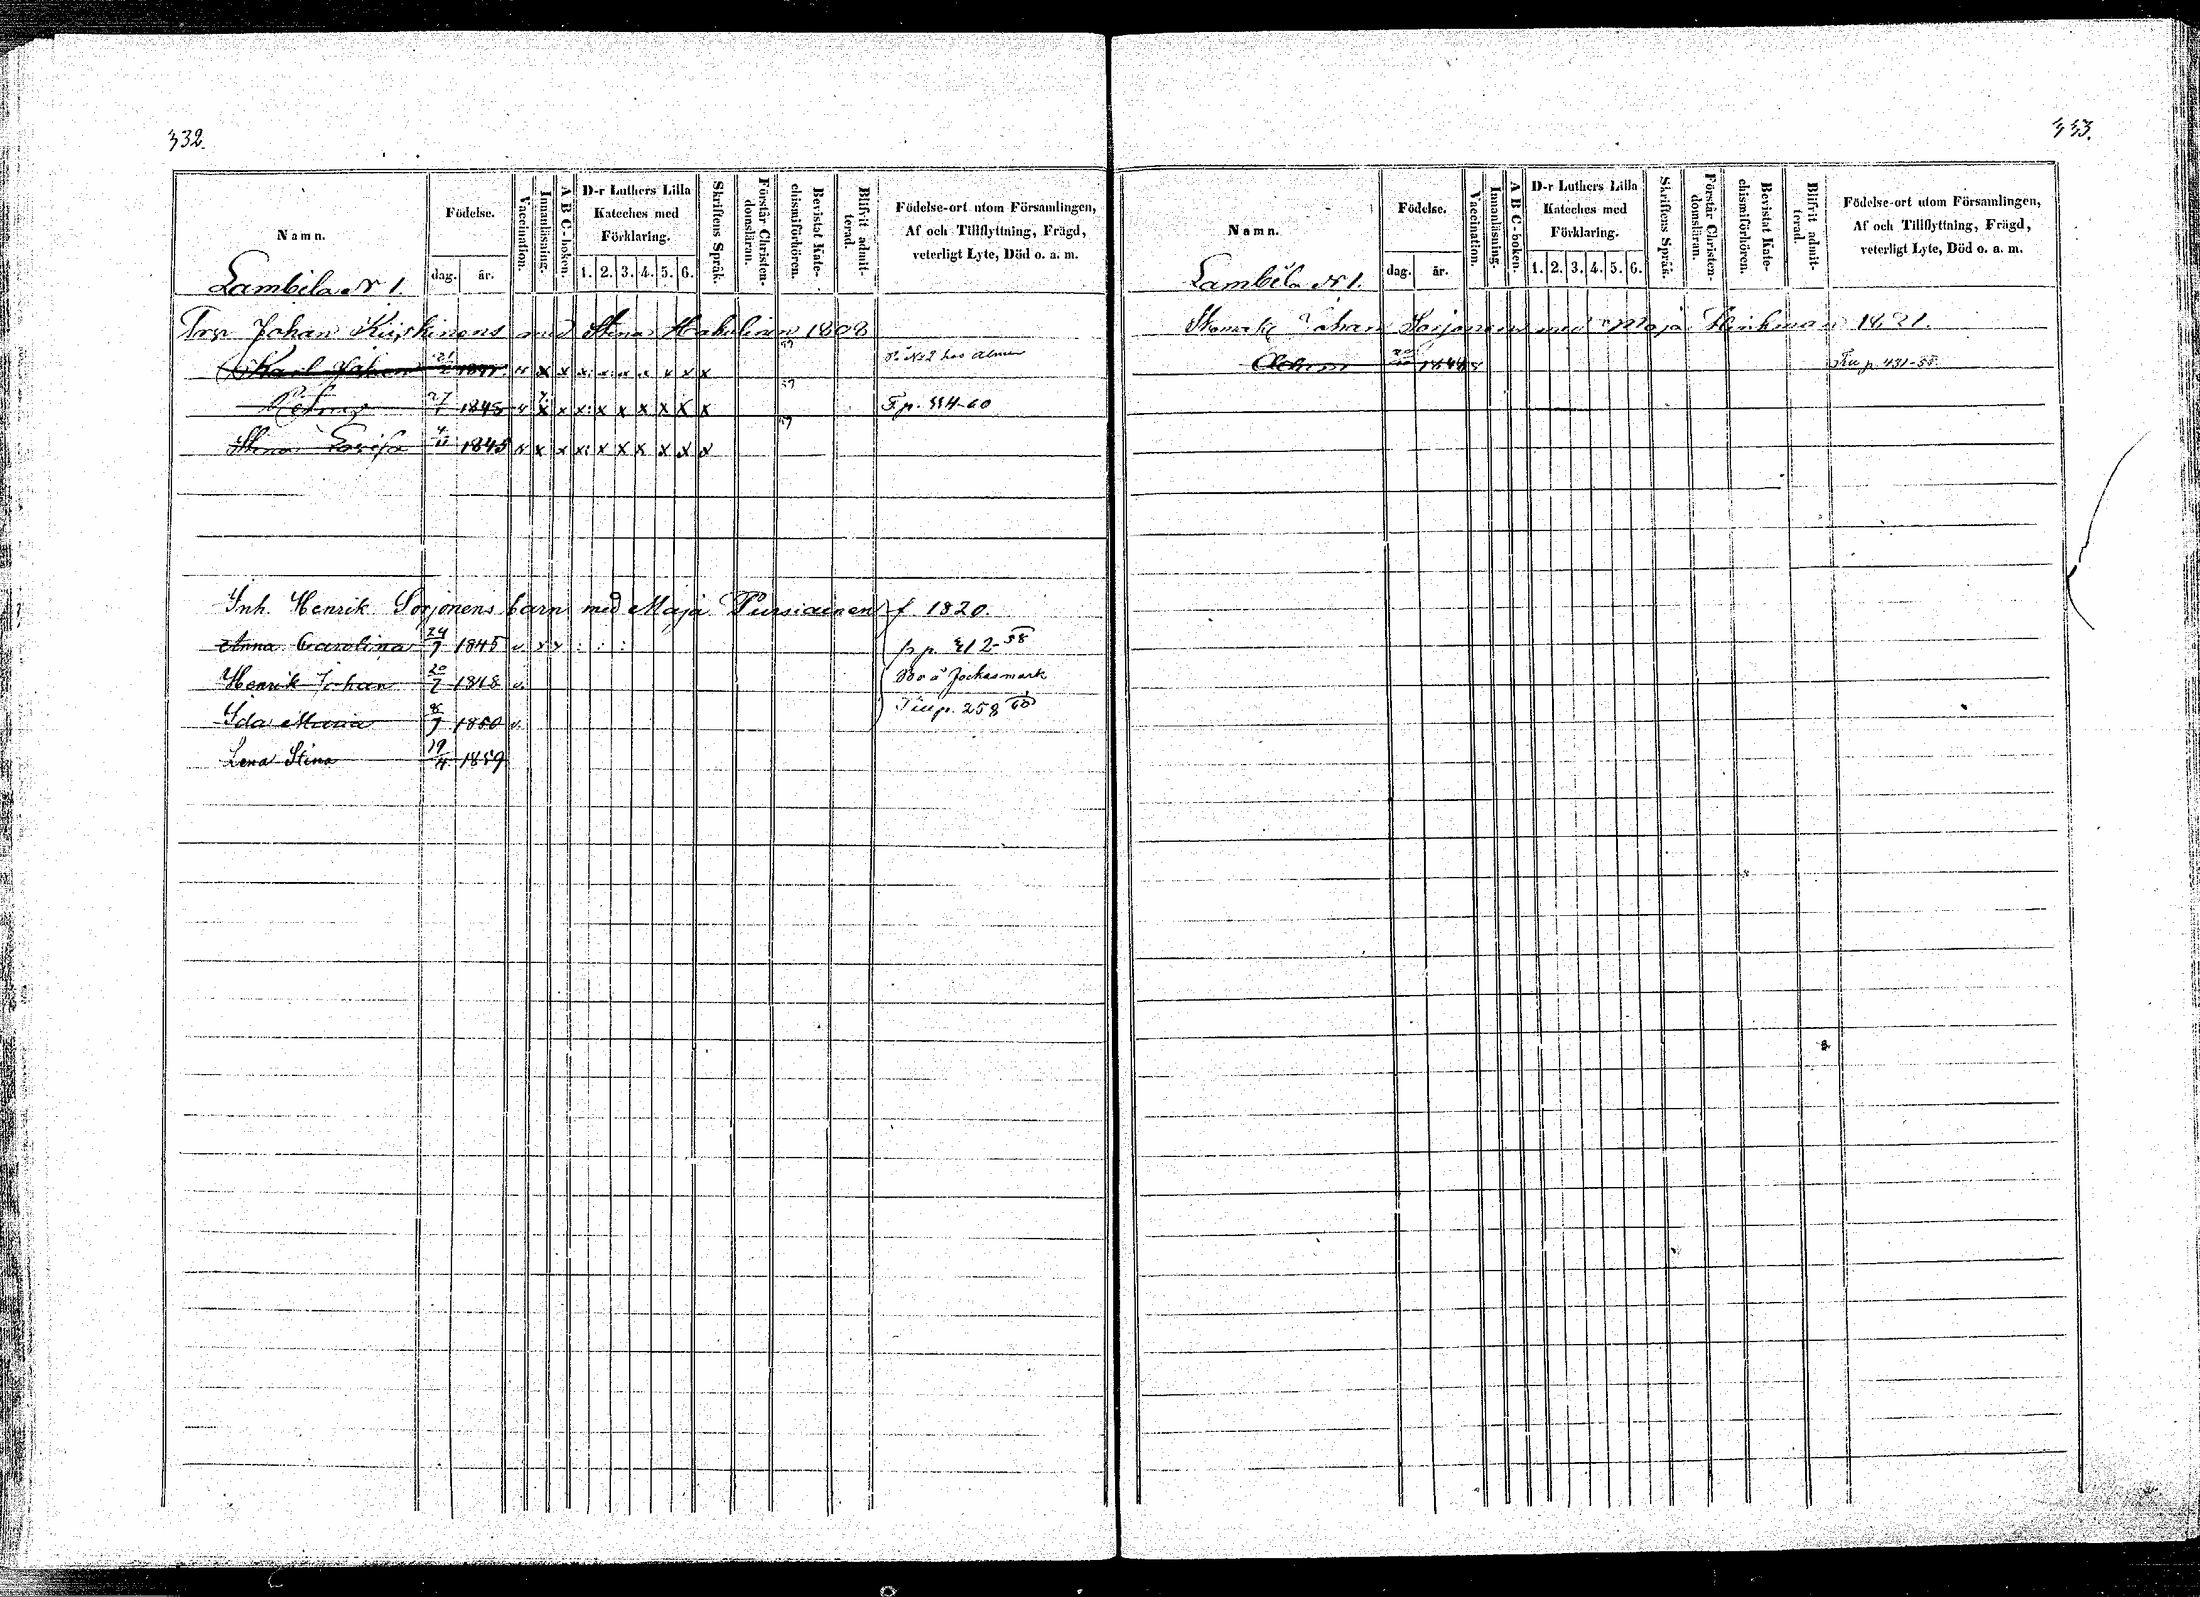 332.
Namn.
Födelse.
dag. år.
Vaccination.
Innanläsning.
A B C-boken.
D-r Luthers Lilla Kateches med Förklaring.
1. 2. 3. 4. 5. 6.
Skriftens Språk.
Förstår Christendomsläran.
Bevistat Katechismiförhören.
Blifvit admitterad.
Födelse-ort utom Församlingen,
Af och Tillflyttning, Frägd,
veterligt Lyte, Död o. a. m.
Lambila N 1.
Johan Kiiskinens med Stina Hakulinen 1808
Karl Johan v x x x: x: x x x x x
27 1 1843 v x x x: x x x x x x F.p. 554-60
Stina 4 11 1845 v x x x: x x x x x x
Inh. Henrik Sorjonens barn med Maja Pursiainen f. 1820.
Anna Carolina 24 7 1845 v. x x : : : p. 412-58
Henrik Johan 20 7 1848 v. Bo i Jockasmark
Ida Maria 8 9 1850 v. 258 60
Lena Stina 19 4 1859
333.
Namn.
Födelse.
dag. år.
Vaccination.
Innanläsning.
A B C-boken.
D-r Luthers Lilla Kateches med Förklaring.
1. 2. 3. 4. 5. 6.
Skriftens Språk.
Förstår Christendomsläran.
Bevistat Katechismiförhören.
Blifvit admitterad.
Födelse-ort utom Församlingen,
Af och Tillflyttning, Frägd,
veterligt Lyte, Död o. a. m.
Lambila N 1.
Johan Sorjonen med Maja Hinkman 1821.
p. 431-55.